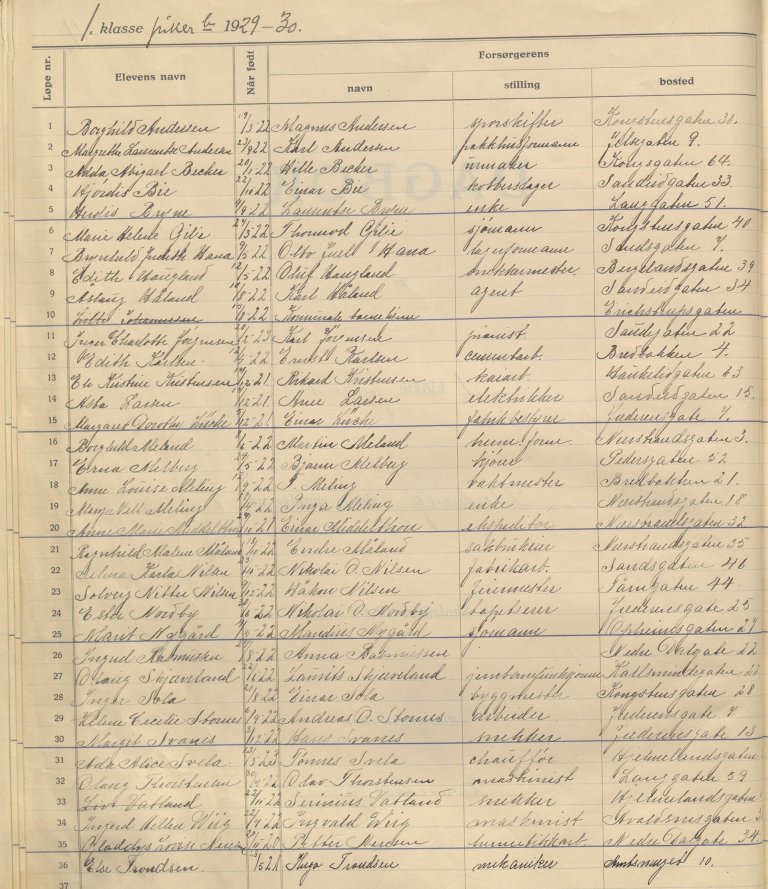 1. klasse piker b 1929-30.
Løpe nr. Elevens navn Når født Forsørgerens
navn stilling bosted
1 Borghild Andersen 19/3 22 Magnus Andersen sporskifter Kongshusgaten 30.
2 Margrethe Andersen 22 Karl Andersen pakkhusformann 9.
3 Alda Abigael Becker 20/11 22 Hille Becker urmaker Kongsgaten 64.
4 Hjørdis Bie 22/10 22 Einar Bie kobberslager Sandeidgaten 33.
5 Herdis Bryne 22 Lauritse Bryne enke Langgaten 51.
6 Marie Helene Gilje 27/3 22 Thormod Gilje sjømann Kongshusgaten 40
7 Brynhild Judith Hana 9/5 22 Otto Juell Hana lagerformann Sandsgaten 7.
8 Edith Haugland 12/5 22 Oluf Haugland Bergelandsgaten 39
9 Åslaug Håland 10/8 22 Karl Håland agent Sandeidgaten 34
10 Lilli Johannesen 8 22 Kommunale barnehjem Erichstrupsgaten
11 Inger Charlotte Jørgensen 20 23 Karl Jørgensen pianist. Saudegaten 22
12 Edith Karlsen 22 Ernst Karlsen cementarb. Bredbakken 4.
13 Eli Kristine Kristensen 12 21 Rikard Kristensen kaiarb. Haukeligaten 63
14 Asba Larsen 12 21 Arne Larsen elektriker Sandeidgaten 15.
15 Margaret Dorothy Lücke 12 21 Einar Lücke fabrikbestyrer Jæderensgate 7.
16 Borghild Meland 6 22 Martin Meland herm. form. Nærstrandsgaten 3.
17 Erna Melberg 24/5 22 Bjarne Melberg kjører Pedersgaten 52
18 Anne Louise Meling 9 22 J. Meling vaktmester Bredbakken 21.
19 Meling 4 22 Inga Meling enke Nærstrandsgaten 18
20 Anne Marie Middelthon 10 21 Einar Middelthon ekspeditør Nærstrandsgaten 32
21 Ragnhild Malene Måland 10 22 Endre Måland Nærstrandsgaten 35
22 Selma Karla Nilsen 23 22 Nikolai O. Nilsen fabrikarb. Sandsgaten 46
23 Solveig Nilsen 22 Håkon Nilsen feiermester Tårngaten 44
24 Ester Nordby 6 22 Nikolai O. Nordby tapetserer Jæderensgate 25
25 Marit Nygård 22 Mandius Nygård sjømann Opheimsgaten 27
26 Ingrid Rasmussen 8 22 Anna Rasmussen Nedre Dalgate 22
27 Olaug Skjæveland 22 Laurits Skjæveland jernbanefunksjonær
28 Inger Sola 21/8 22 Einar Sola byggmester Kongshusgaten 28
29 Helene Cecilie Stornes 6/9 22 Andreas O. Stornes arbeider Jæderensgate 7
30 Margit Svanes 3/12 22 Hans Svanes snekker Jæderensgate 13
31 Ada Alice Svela 31 23 Tønnes Svela chauffør Hjelmelandsgaten
32 Olaug Thorstensen 22 Olav Thorstensen maskinist Langgaten 59
33 Liv Vatland 22 Serinius Vatland snekker Hjelmelandsgaten
34 Ingerd Wiig 9 22 Ingvald Wiig maskinist Avaldsnesgaten
35 Gladdys 21 Petter hermetikkarb. Nedre Dalgate 34.
36 Else Trondsen 5 21 Hugo Trondsen mekaniker 10.
37